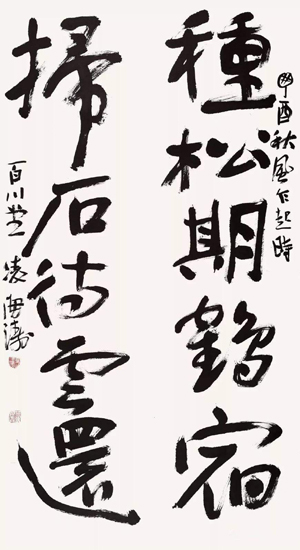 酉秋風乍起時
種松期鶴宿
掃石待雲還
百川
凌海濤